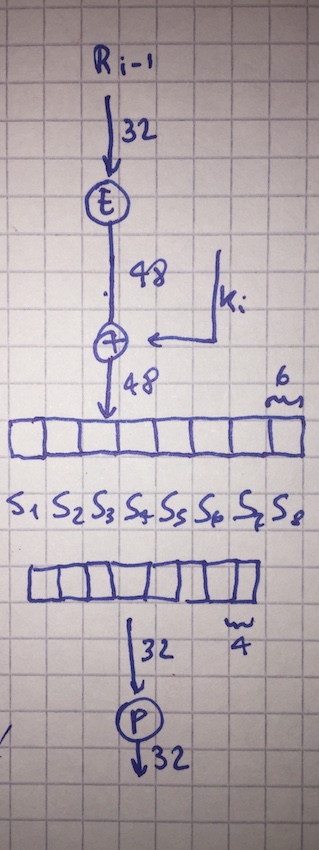 R i-1
32
E
48
+
Ki
48
6
S1 S2 S3 S4 S5 S6 S7 S8
4
32
P
32